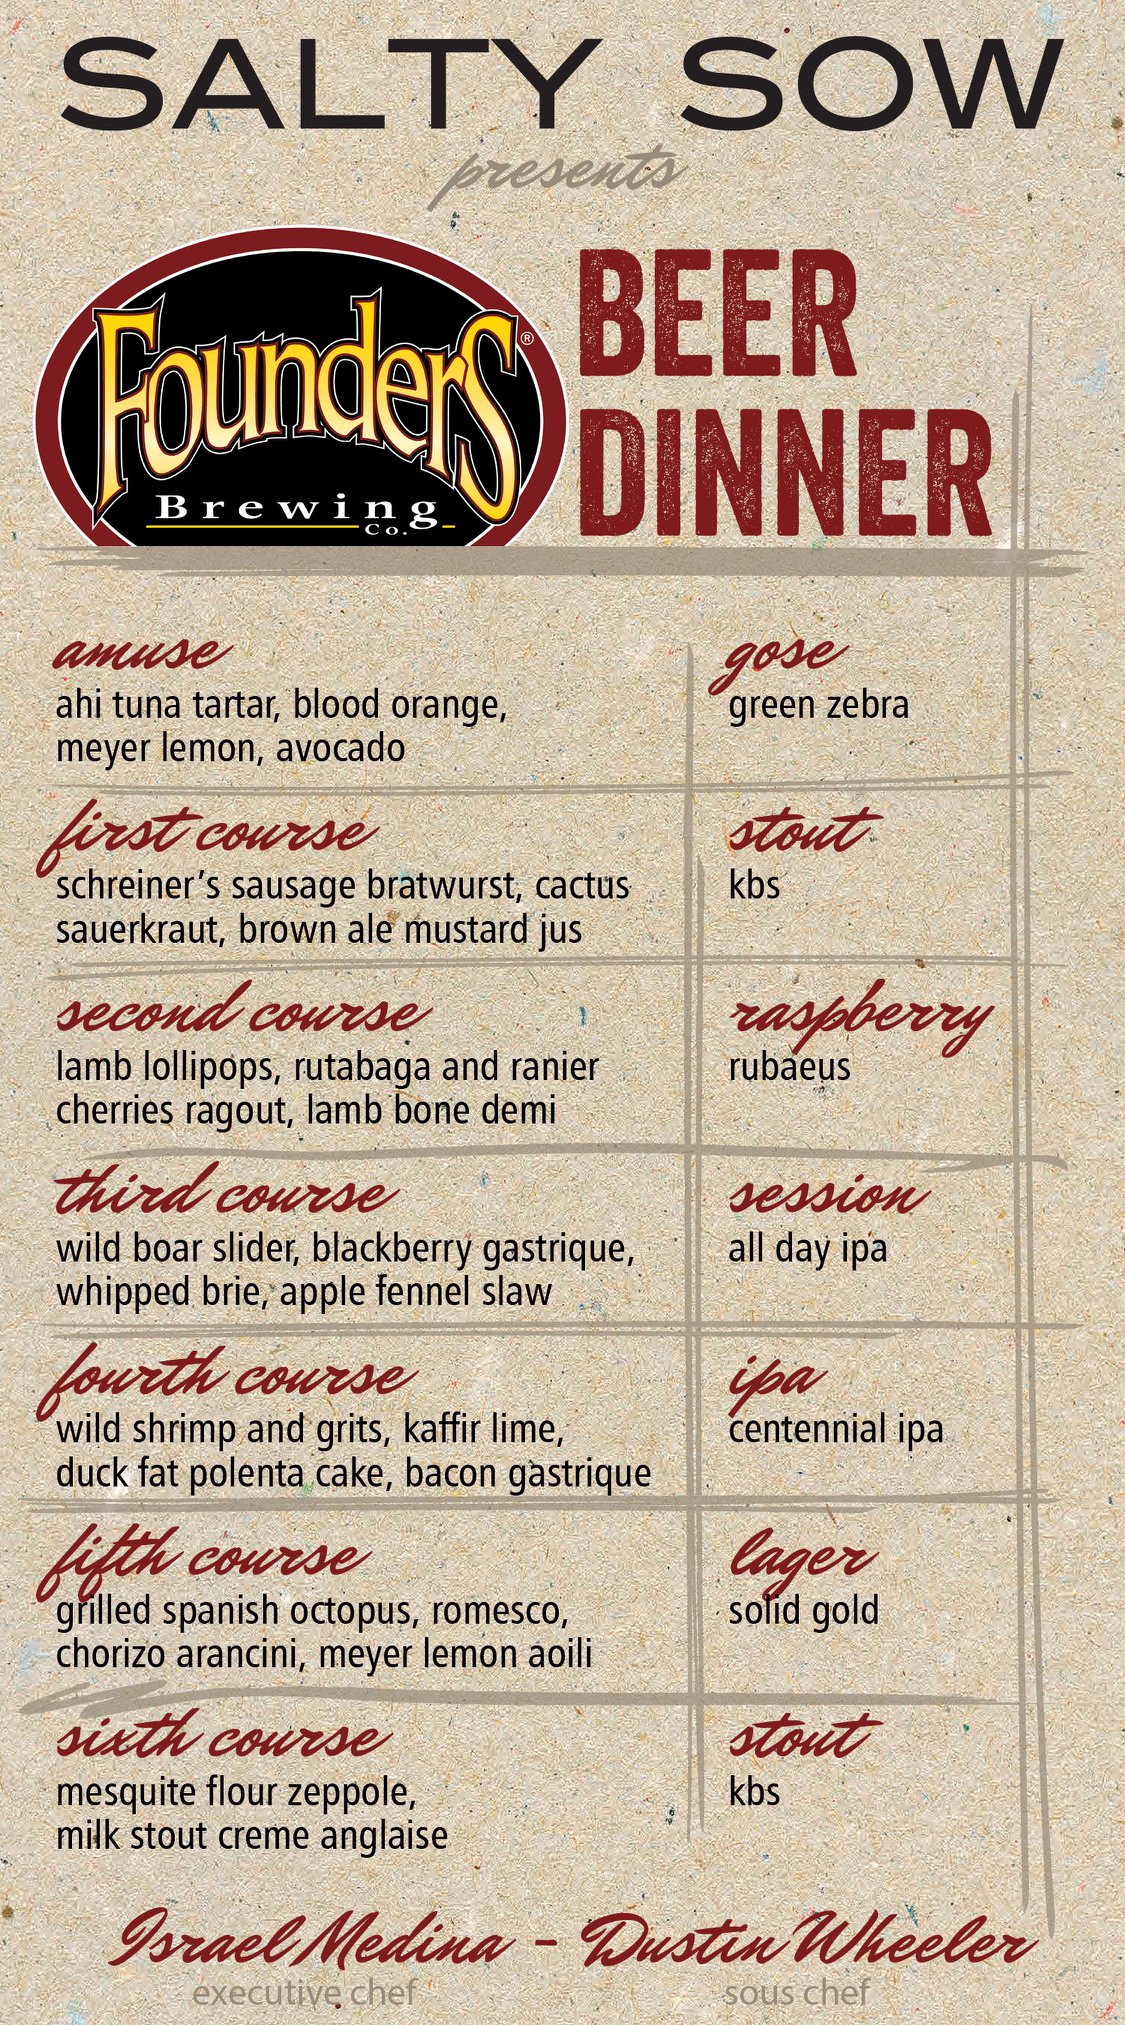 SALTY SOW
presents
Founders®
Brewing
Co.
BEER
DINNER
amuse
ahi tuna tartar, blood orange,
meyer lemon, avocado
gose
green zebra
first course
schreiner’s sausage bratwurst, cactus
sauerkraut, brown ale mustard jus
stout
kbs
second course
lamb lollipops, rutabaga and ranier
cherries ragout, lamb bone demi
raspberry
rubaeus
third course
wild boar slider, blackberry gastrique,
whipped brie, apple fennel slaw
session
all day ipa
fourth course
wild shrimp and grits, kaffir lime,
duck fat polenta cake, bacon gastrique
ipa
centennial ipa
fifth course
grilled spanish octopus, romesco,
chorizo arancini, meyer lemon aoili
lager
solid gold
sixth course
mesquite flour zeppole,
milk stout creme anglaise
stout
kbs
Israel Medina - Dustin Wheeler
executive chef sous chef